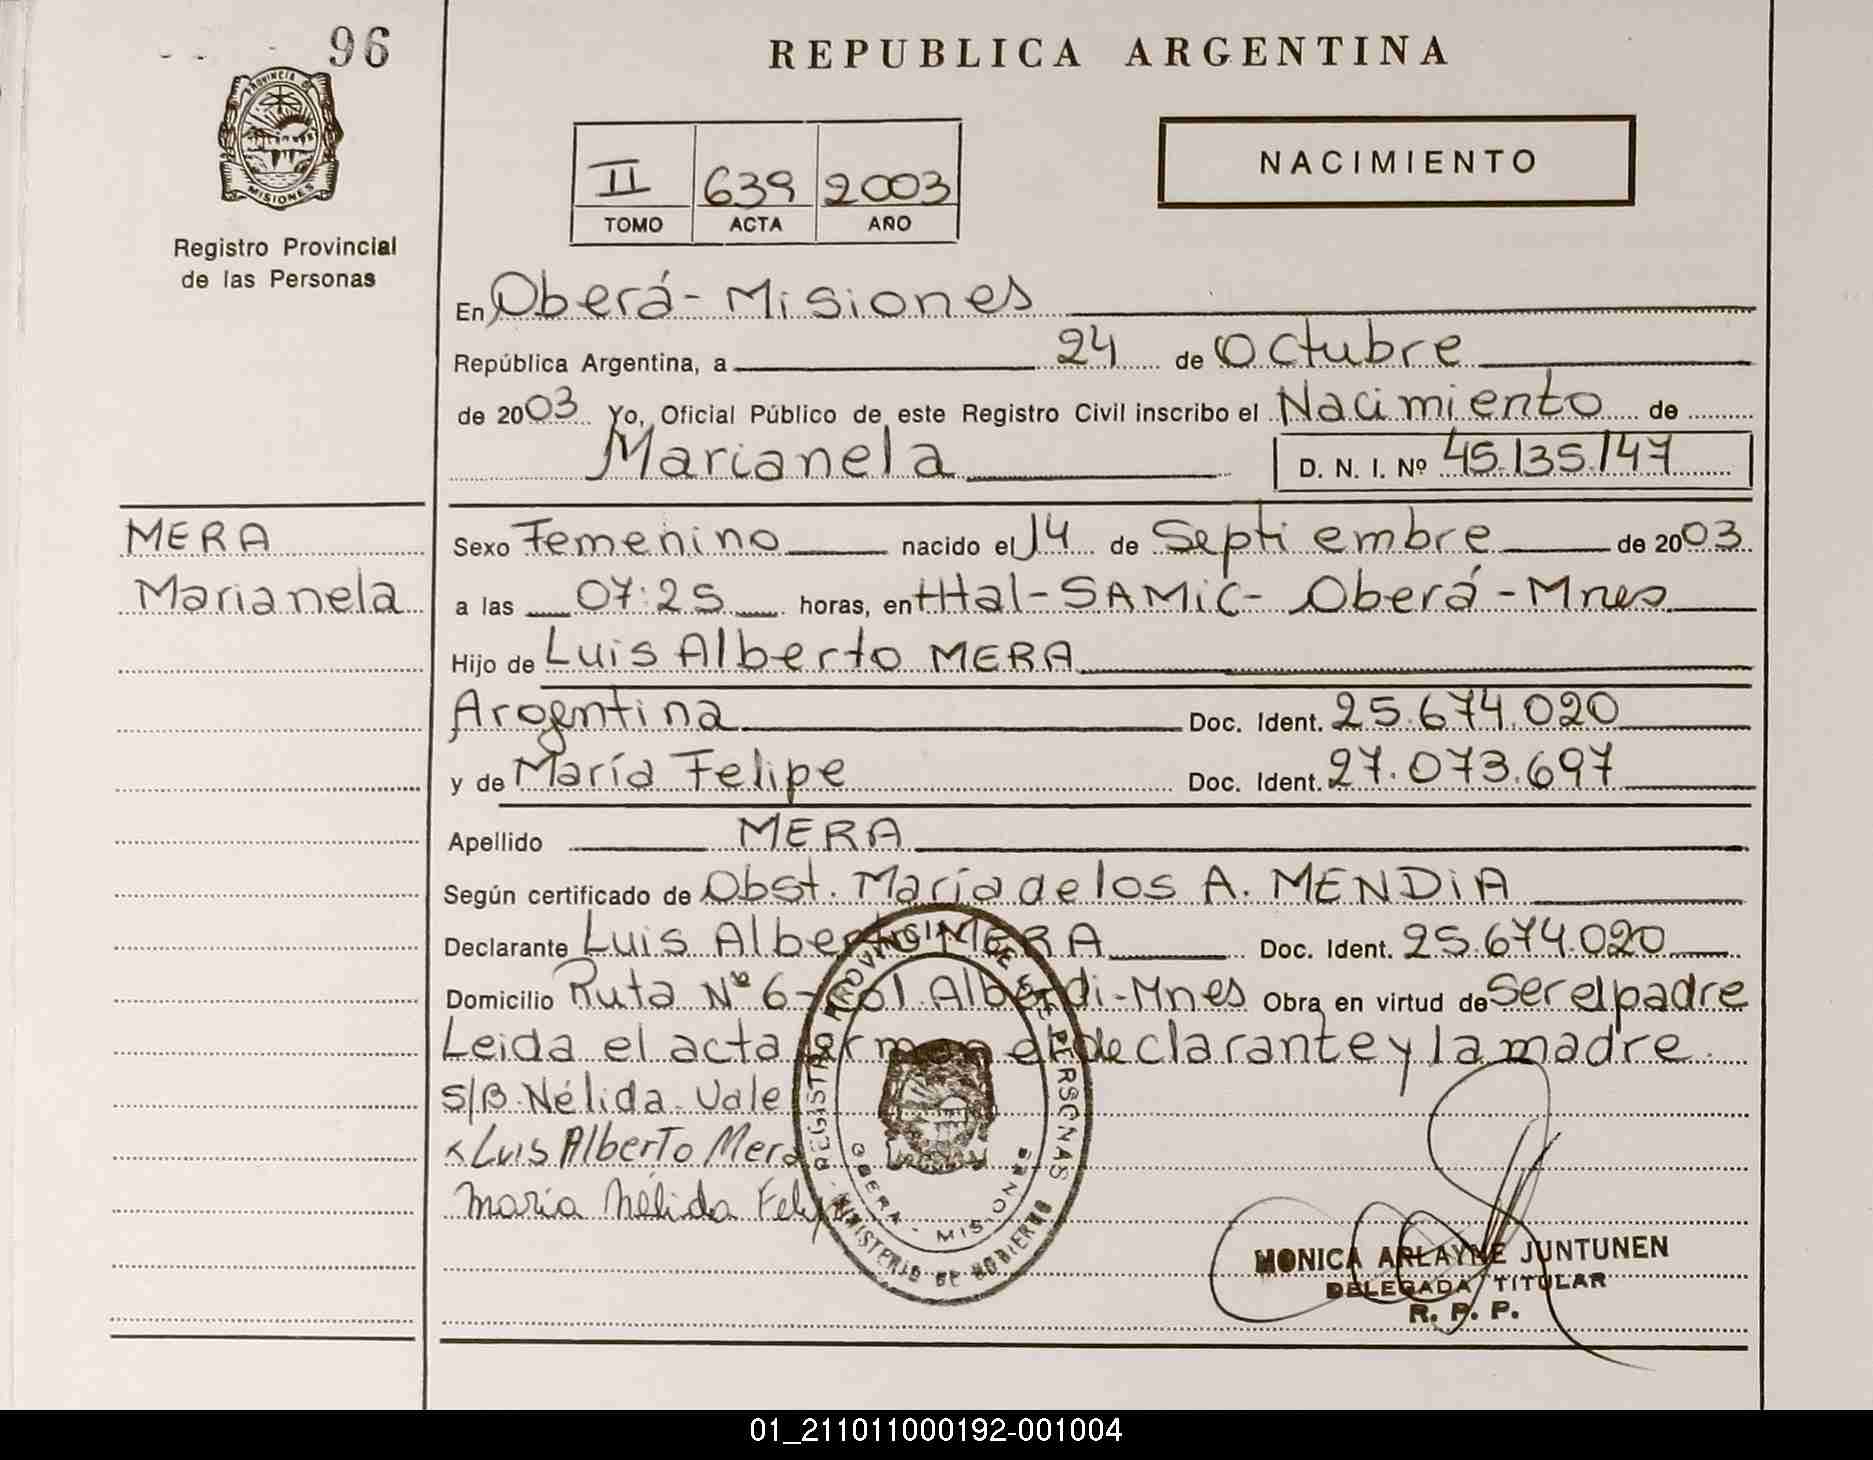 96
REPUBLICA ARGENTINA
PROVINCIA DE
MISIONES
Registro Provincial
de las Personas
II 639 2003
TOMO ACTA AÑO
NACIMIENTO
En Oberá - Misiones
República Argentina, a 24 de Octubre
de 2003 Yo, Oficial Público de este Registro Civil inscribo el Nacimiento de
Marianela D. N. I. Nº 45.135.147
MERA
Marianela
Sexo Femenino nacido el 14 de Septiembre de 2003
a las 07:25 horas, en Hal-SAMiC- Oberá - Mnes
Hijo de Luis Alberto MERA
Argentina Doc. Ident. 25.674.020
y de María Felipe Doc. Ident. 27.073.697
Apellido MERA
Según certificado de Obst. María de los A. MENDiA
Declarante Luis Alberto MERA Doc. Ident. 25.674.020
Domicilio Ruta Nº 6 - Col. Alberdi - Mnes Obra en virtud de Ser el padre
Leida el acta firman el declarante y la madre.
S/B. Nélida. Vale
x Luis Alberto Mera
María Nélida Felipe
REGISTRO PROVINCIAL DE LAS PERSONAS
MINISTERIO DE GOBIERNO
OBERA - MISIONES
MONICA ARLAYNE JUNTUNEN
DELEGADA TITULAR
R. P. P.
01_211011000192-001004